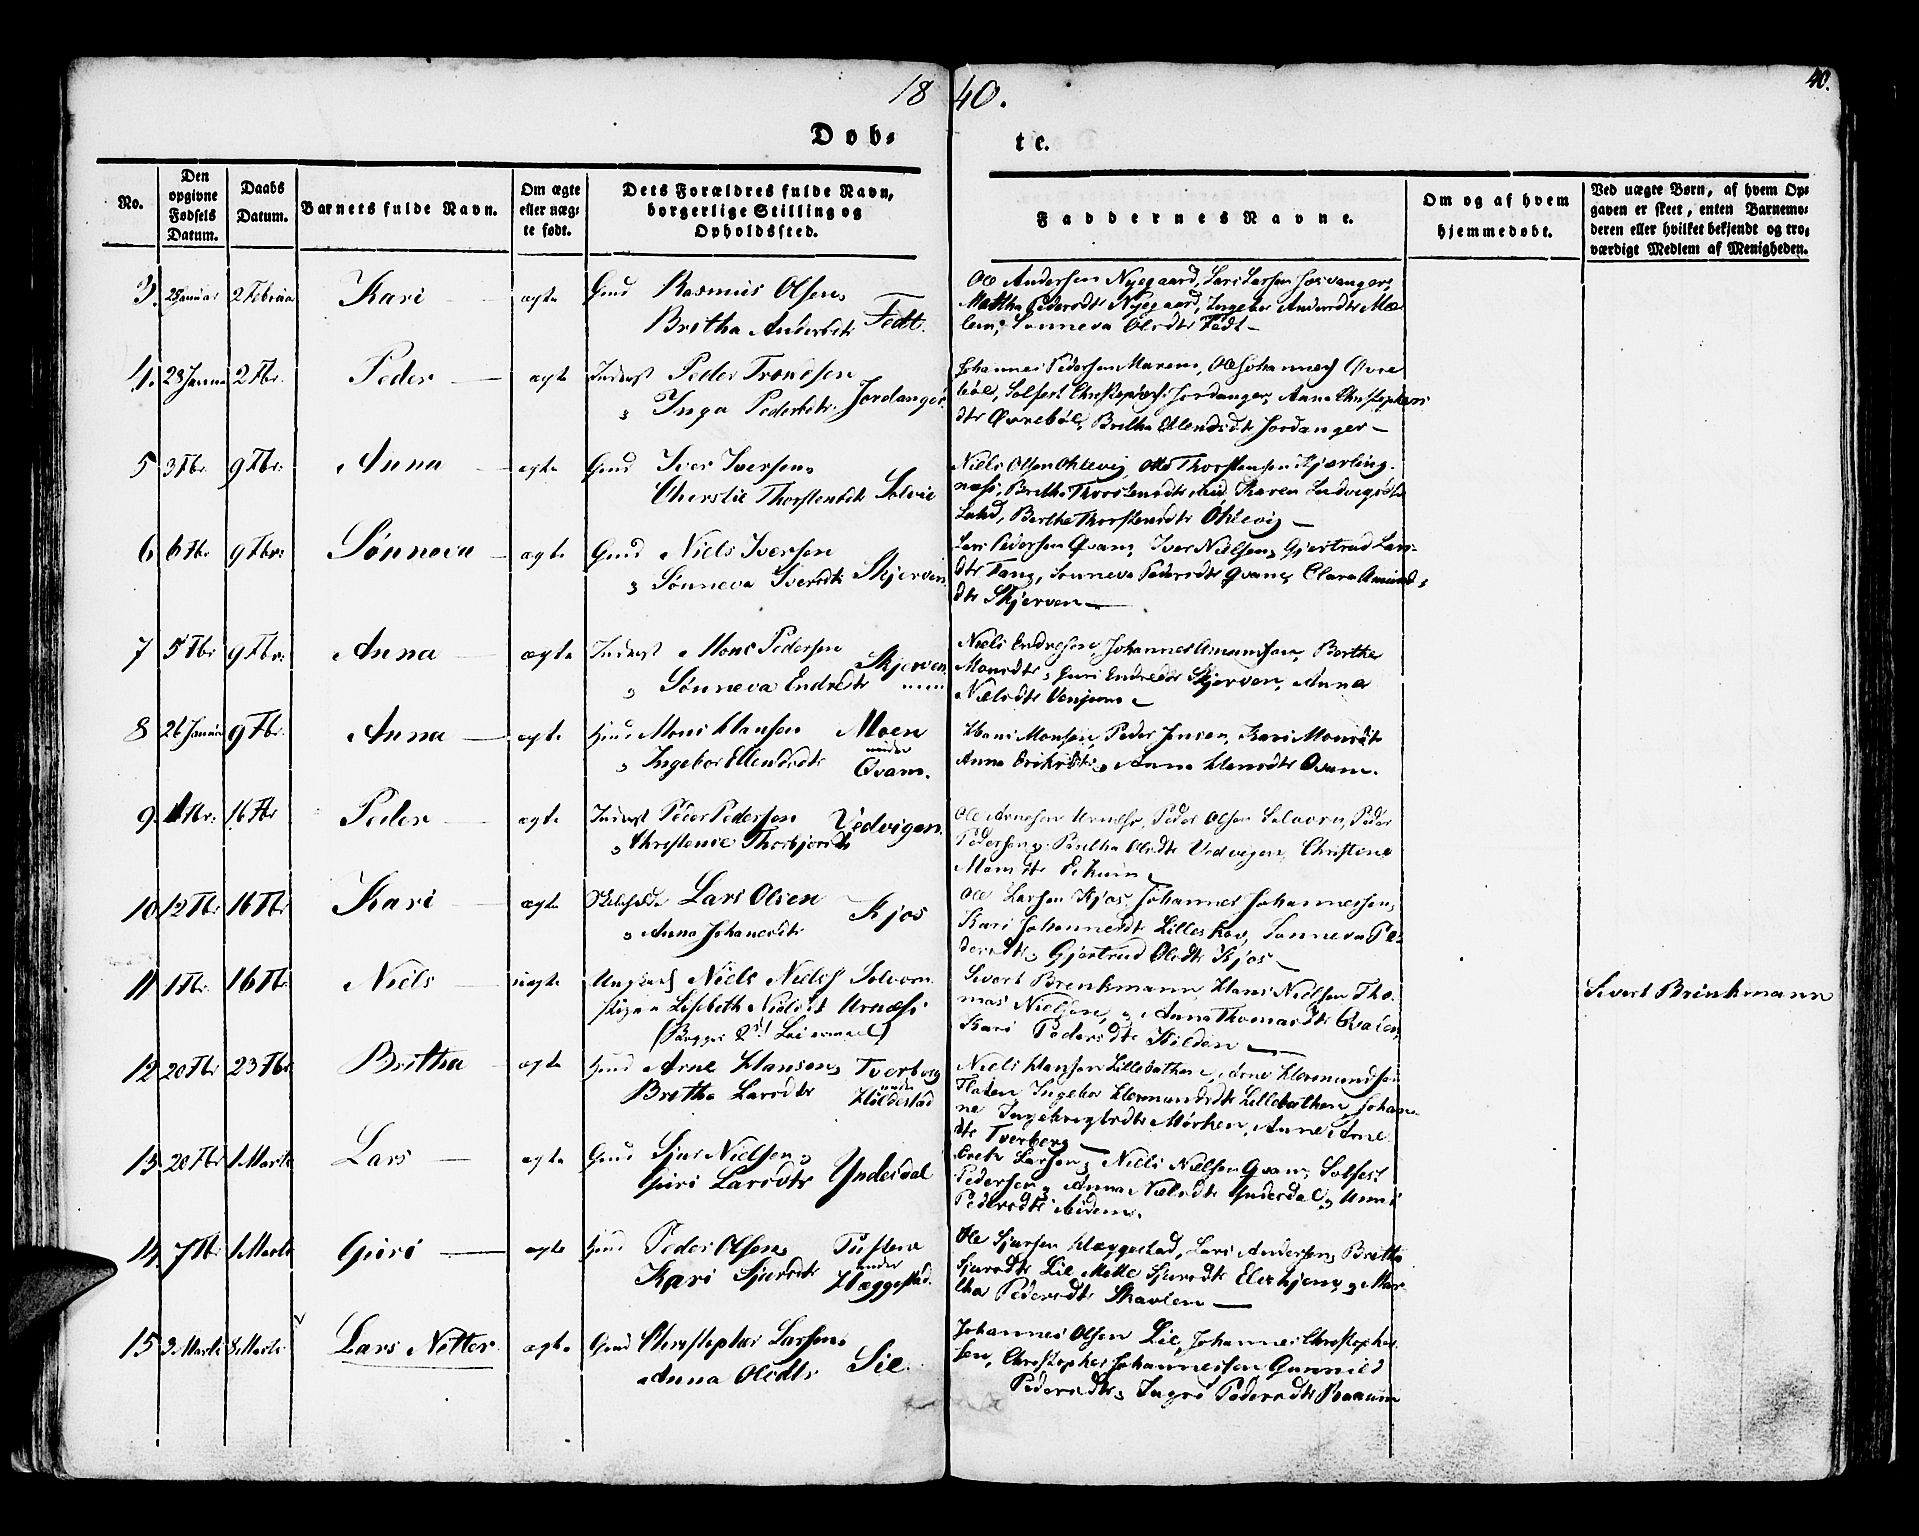 18 40.
40.
Dob- te.
No.
Den opgivne Fødsels Datum.
Daabs Datum.
Barnets fulde Navn.
Om ægte eller uæg- te født.
Dets Forældres fulde Navn, borgerlige Stilling og Opholdssted.
Faddernes Navne.
Om og af hvem hjemmedøbt.
Ved uægte Børn, af hvem Op- gaven er skeet, enten Barnemo- deren eller hvilket bekjendt og tro- værdigt Medlem af Menigheden.
3. 2 Februar Kari ægte Gmd Rasmus Olsen,
Britha Andersdtr Fedt.
Ole Andersen Nyegaard, Lars Larsen
Martha Pedersdtr Nyegaard, Ingebor Andersdtr
Sønneva Olsdtr Fedt
4. 28 Janua 2 Fbr. Peder ægte Inderst Peder Trondsen
" Inga Pedersdtr. Jordanger
Johannes Pedersen Marem, Ole Johannes Øvre
bøe, Solfest Christophers Jordanger, Anna Christophers
dtr Øvrebøe, Britha Ellendsdtr Jordanger
5 3 Fbr. 9 Fbr: Anna ægte Gmd Iver Iversen,
Cherstie Thorstensdtr Solvie
Niels Olsen Ohlevig, Otto Thorstensen Kjærling
næs, Britha Thorstensdtr Karen Ludvigsdtr
Lahd, Berthe Thorstensdtr Ohlevig
6 6 Fbr 9 Fbr: Sønneva ægte Gmd Niels Iversen
" Sønneva Iversdtr Skjerven
Lars Pedersen Qvam, Iver Nielsen, Gjertrud Lars
dtr Tang, Sønneva Pedersdtr Qvam, Clara Amund
dtr Skjerven
7 5 Fbr 9 Fbr: Anna ægte Inderst Mons Pedersen
" Sønneva Endredtr Skjerven
Niels Endresen, Johannes Amundsen, Berthe
Monsdtr, Guri Endredtr Skjerven, Anna
Nielsdtr Venjum
8 26 Janua 9 Fbr. Anna ægte Gmd Mons Hansen Moen
" Ingebor Ellendsdtr under Qvam.
Hans Monsen, Peder Jensen, Kari Monsdtr
Anna Eriksdtr, Anna Hansdtr Qvam.
9. 16 Fbr Peder ægte Inderst Peder Pedersen Vedvigen
" Christense Thorbjørsdtr
Ole Arnesen Urnæss, Peder Olsen Solvorn, Peder
Pedersen, Britha Olsdtr Vedvigen, Christine
Monsdtr
10 12 Fbr 16 Fbr Kari ægte Lars Olsen Kjos
" Anna Johanesdtr
Ole Larsen Kjos, Johannes Johannessen,
Kari Johannesdtr Lilleskov, Sønneva Pe-
dersdtr, Gjertrud Olsdtr Kjos
11 1 Fbr. 16 Fbr. Niels uægte Ungkarl Niels Niels Solvorn
Pige Lisebeth Nielsdtr Urnæss
Sivert Brinkmann, Hans Nielsen Tho-
mas Nielsen, Anna Thomasdtr Qvalen,
Kari Pedersdtr Kilden
Sivert Brinkmann
12 20 Fbr 23 Fbr. Britha ægte Gmd Arne Hansen, Tverberg
Britha Larsdtr under Hildestad
Niels Hansen Lillebakken, Arne Hermundsen
Flaten, Ingebor Hermundsdtr Lillebakken, Johan
ne Ingebrigtsdtr Mørken, Anne Arne
dtr Tverberg
13. 20 Fbr 1 Marts Lars ægte Gmd Sjur Nielsen,
Guri Larsdtr Yndesdal
Erik Larsen, Niels Nielsen Qvam, Solfest
Pedersen, Anna Nielsdtr Yndesdal, Unni
Pedersdtr
14. 7 Fbr 1 Marts Guri ægte Gmd Peder Olsen,
Kari Sjursdtr under Hæggestad.
Ole Sjursen Hæggestad, Lars Andersen, Britha
Sjursdtr Lie, Mette Sjursdtr Eleskjem, Mar-
tha Pedersdtr Skavlen
15 3 Marts 8 Marts Lars Nitter ægte Gmd Christopher Larsen,
Anna Olsdtr Lie.
Johannes Olsen Lie, Johannes Christopher
sen, Christopher Johannessen Gunnild
Pedersdtr, Ingri Pedersdtr